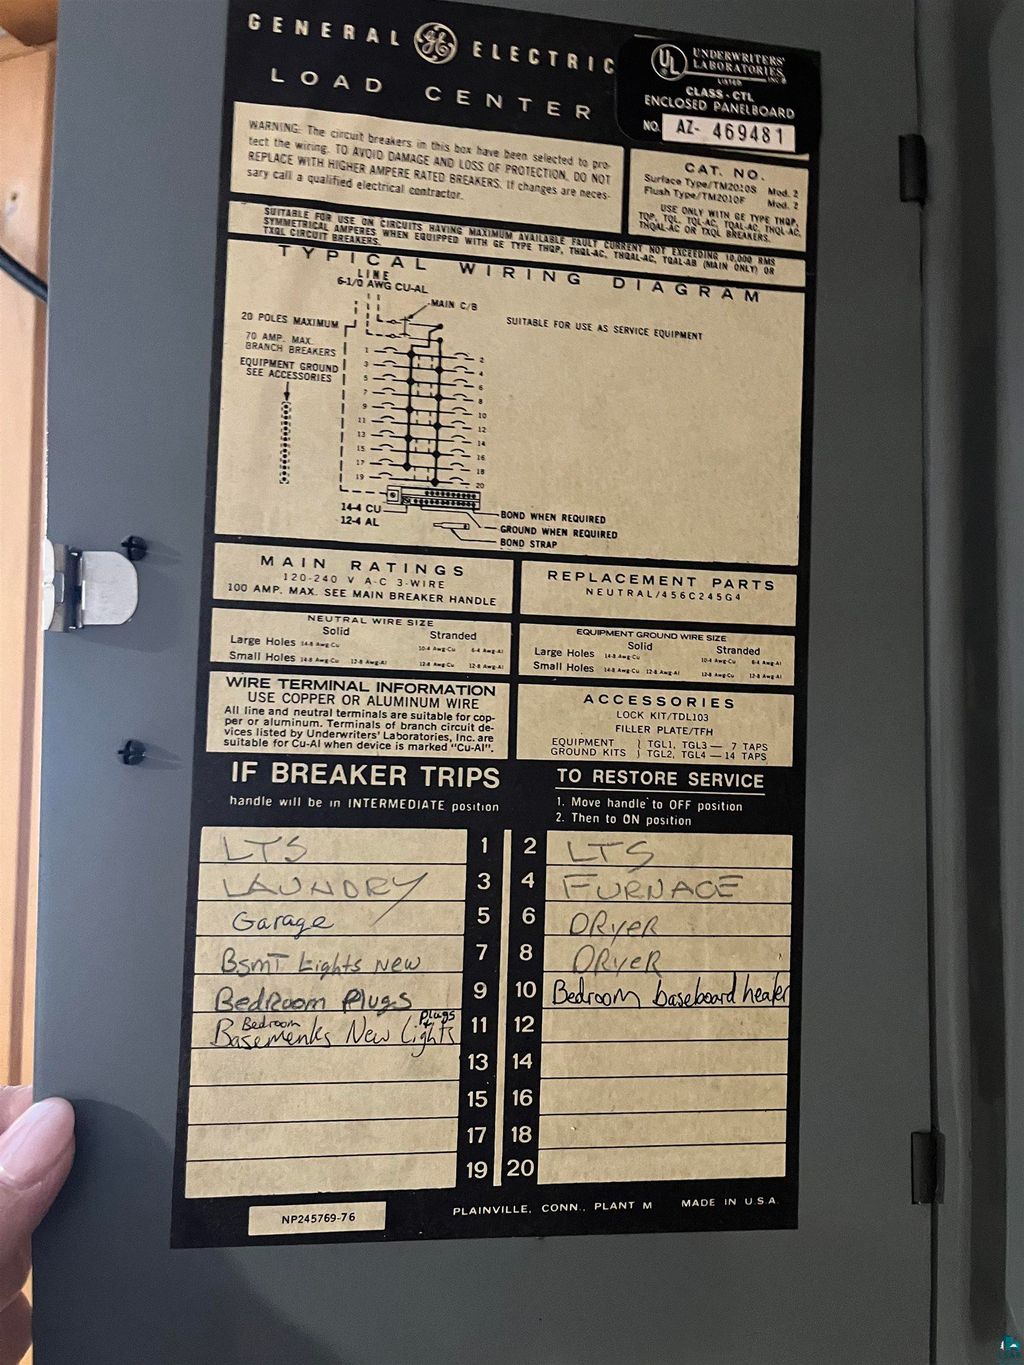 GENERAL GE ELECTRIC
LOAD CENTER
UL UNDERWRITERS'
LABORATORIES, INC.®
LISTED
CLASS-CTL
ENCLOSED PANELBOARD
NO. AZ- 469481
WARNING: The circuit breakers in this box have been selected to pro-
tect the wiring. TO AVOID DAMAGE AND LOSS OF PROTECTION, DO NOT
REPLACE WITH HIGHER AMPERE RATED BREAKERS. If changes are neces-
sary call a qualified electrical contractor.
CAT. NO.
Surface Type/TM2010S Mod. 2
Flush Type/TM2010F Mod. 2
USE ONLY WITH GE TYPE THQP,
TQP, TQL, TQL-AC, TQAL-AC, THQL-AC,
THQAL-AC OR TXQL BREAKERS.
SUITABLE FOR USE ON CIRCUITS HAVING MAXIMUM AVAILABLE FAULT CURRENT NOT EXCEEDING 10,000 RMS
SYMMETRICAL AMPERES WHEN EQUIPPED WITH GE TYPE THQP, THQL-AC, THQAL-AC, TQAL-AB (MAIN ONLY) OR
TXQL CIRCUIT BREAKERS.
TYPICAL WIRING DIAGRAM
LINE
6-1/0 AWG CU-AL
MAIN C/B
20 POLES MAXIMUM
70 AMP. MAX.
BRANCH BREAKERS
EQUIPMENT GROUND
SEE ACCESSORIES
SUITABLE FOR USE AS SERVICE EQUIPMENT
1 2
3 4
5 6
7 8
9 10
11 12
13 14
15 16
17 18
19 20
14-4 CU
12-4 AL
BOND WHEN REQUIRED
GROUND WHEN REQUIRED
BOND STRAP
MAIN RATINGS
120-240 V A-C 3-WIRE
100 AMP. MAX. SEE MAIN BREAKER HANDLE
REPLACEMENT PARTS
NEUTRAL/456C245G4
NEUTRAL WIRE SIZE
Solid Stranded
Large Holes 14-8 Awg-Cu 10-4 Awg-Cu 6-4 Awg-Al
Small Holes 14-8 Awg-Cu 12-8 Awg-Al 12-8 Awg-Cu 12-8 Awg-Al
EQUIPMENT GROUND WIRE SIZE
Solid Stranded
Large Holes 14-8 Awg-Cu 10-4 Awg-Cu 6-4 Awg-Al
Small Holes 14-8 Awg-Cu 12-8 Awg-Al 12-8 Awg-Cu 12-8 Awg-Al
WIRE TERMINAL INFORMATION
USE COPPER OR ALUMINUM WIRE
All line and neutral terminals are suitable for cop-
per or aluminum. Terminals of branch circuit de-
vices listed by Underwriters' Laboratories, Inc. are
suitable for Cu-Al when device is marked "Cu-Al".
ACCESSORIES
LOCK KIT/TDL103
FILLER PLATE/TFH
EQUIPMENT } TGL1, TGL3 — 7 TAPS
GROUND KITS } TGL2, TGL4 — 14 TAPS
IF BREAKER TRIPS
handle will be in INTERMEDIATE position
TO RESTORE SERVICE
1. Move handle to OFF position
2. Then to ON position
LTS 1 2 LTS
LAUNDRY 3 4 FURNACE
Garage 5 6 DRYER
BsmT Lights New 7 8 DRYER
BedRoom Plugs 9 10 Bedroom baseboard heater
Bedroom Plugs
Basements New Lights 11 12
13 14
15 16
17 18
19 20
NP245769-76
PLAINVILLE, CONN., PLANT M MADE IN U.S.A.